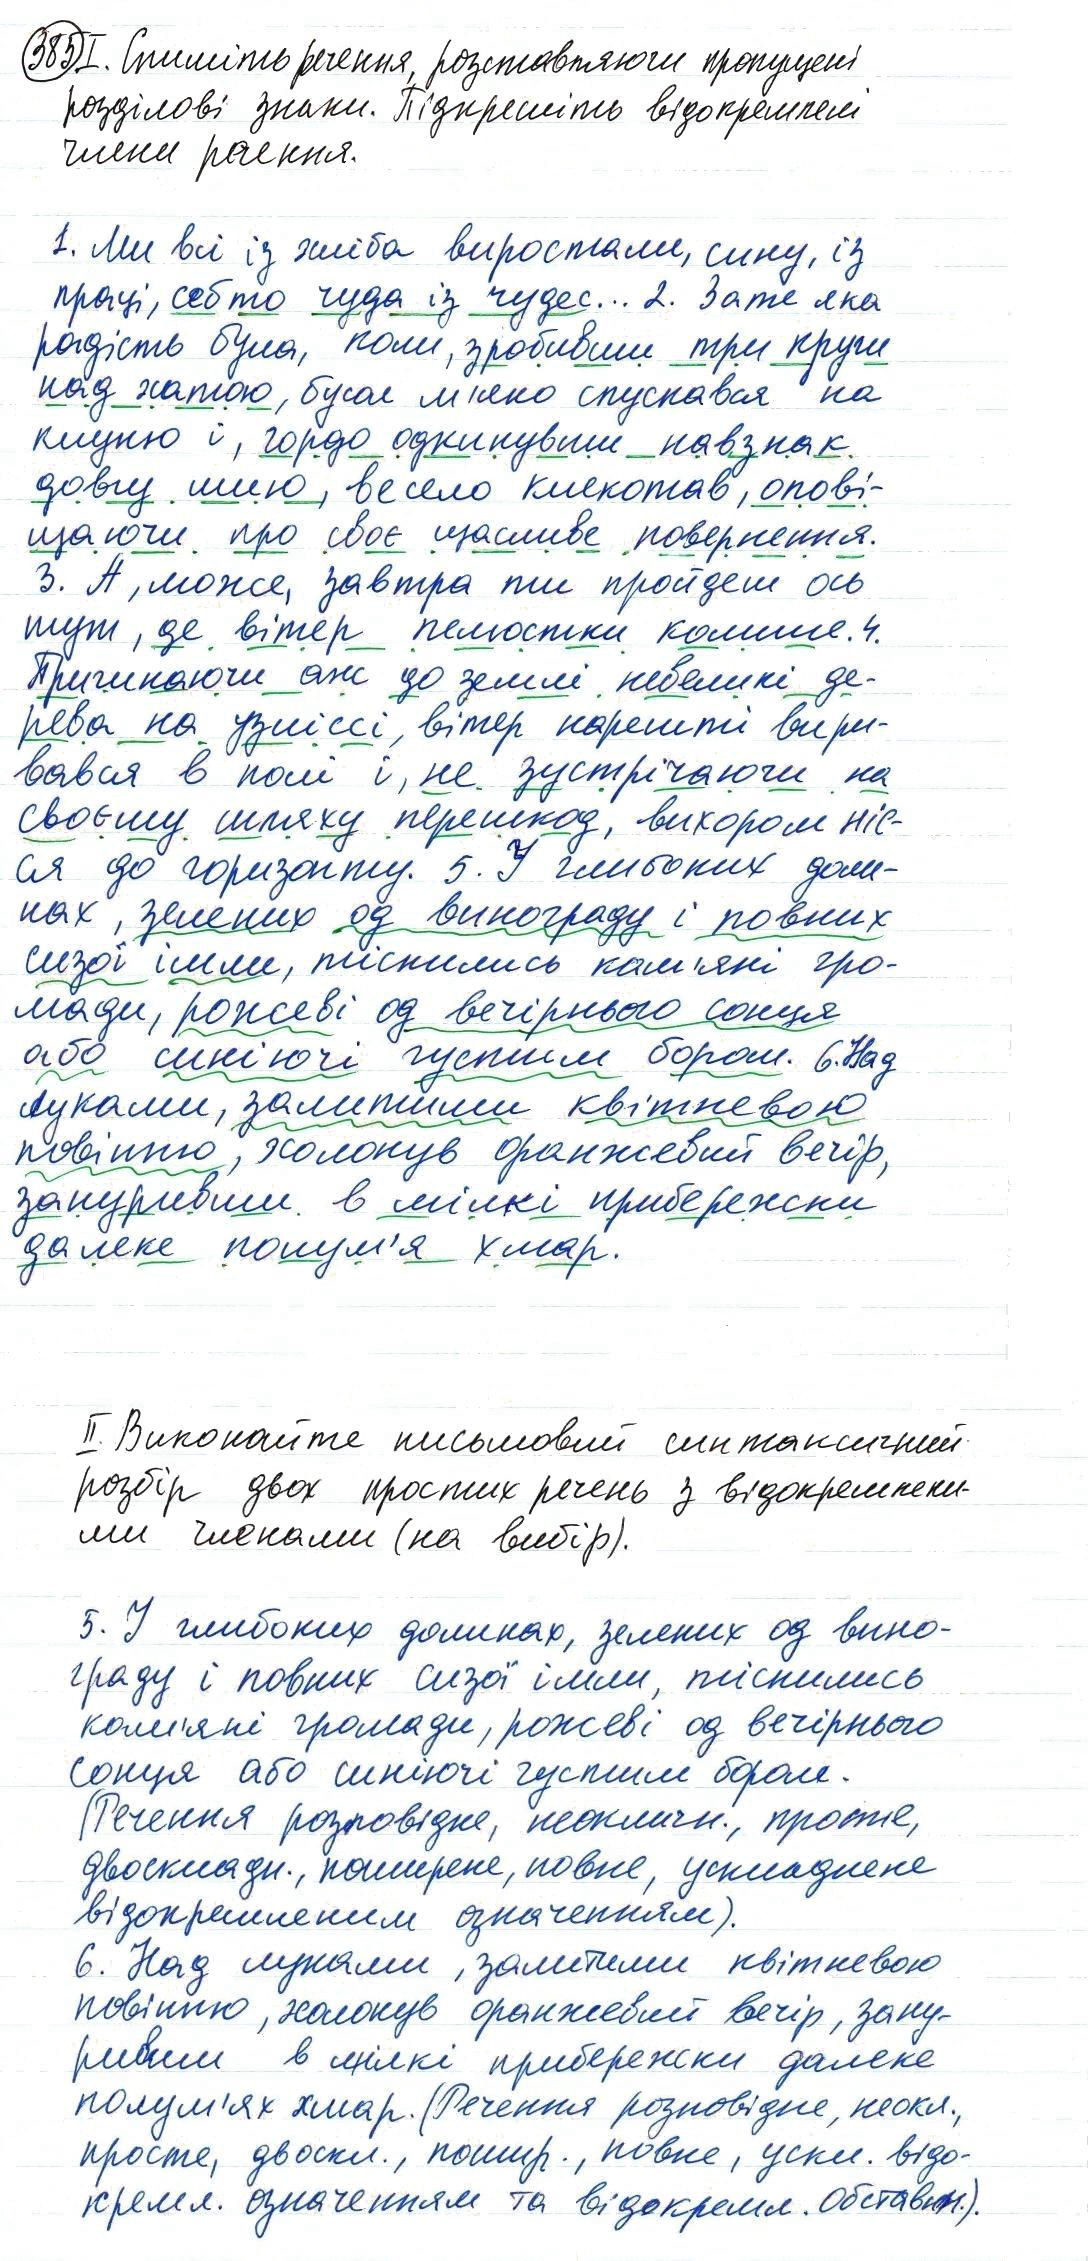 385 I. Спишіть речення, розставляючи пропущені
розділові знаки. Підкресліть відокремлені
члени речення.
1. Ми всі із хліба виростали, сину, із
праці, себто чуда із чудес... 2. Зате яка
радість була, коли, зробивши три круги
над хатою, бусол м'яко спускався на
клуню і, гордо одкинувши навзнак
довгу шию, весело клекотав, опові-
щаючи про своє щасливе повернення.
3. А, може, завтра ти пройдеш ось
тут, де вітер пелюстки колише. 4.
Пригинаючи аж до землі невеликі де-
рева на узліссі, вітер нарешті вири-
вався в полі і, не зустрічаючи на
своєму шляху перешкод, вихором ніс-
ся до горизонту. 5. У глибоких доли-
нах, зелених од винограду і повних
сизої імли, тіснились кам'яні гро-
мади, рожеві од вечірнього сонця
або синіючі густим бором. 6. Над
луками, залитими квітневою
повінню, холонув оранжевий вечір,
зануривши в мілкі прибережки
далеке полум'я хмар.
II. Виконайте письмовий синтаксичний
розбір двох простих речень з відокремлени-
ми членами (на вибір).
5. У глибоких долинах, зелених од вино-
граду і повних сизої імли, тіснились
кам'яні громади, рожеві од вечірнього
сонця або синіючі густим бором.
(Речення розповідне, неокличн., просте,
двоскладн., поширене, повне, ускладнене
відокремленим означенням).
6. Над луками, залитими квітневою
повінню, холонув оранжевий вечір, зану-
ривши в мілкі прибережки далеке
полум'ях хмар. (Речення розповідне, неокл.,
просте, двоскл., пошир., повне, ускл. відо-
кремл. означенням та відокремл. обставин.).